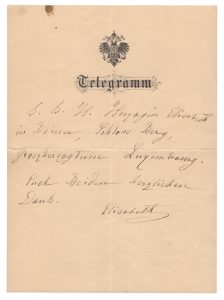 Telegramm
S. K. H. Herzogin Elisabeth
in Baiern, Schloss Berg,
Grossherzogtum Luxembourg.
Euch Beiden herzlichen
Dank.
Elisabeth